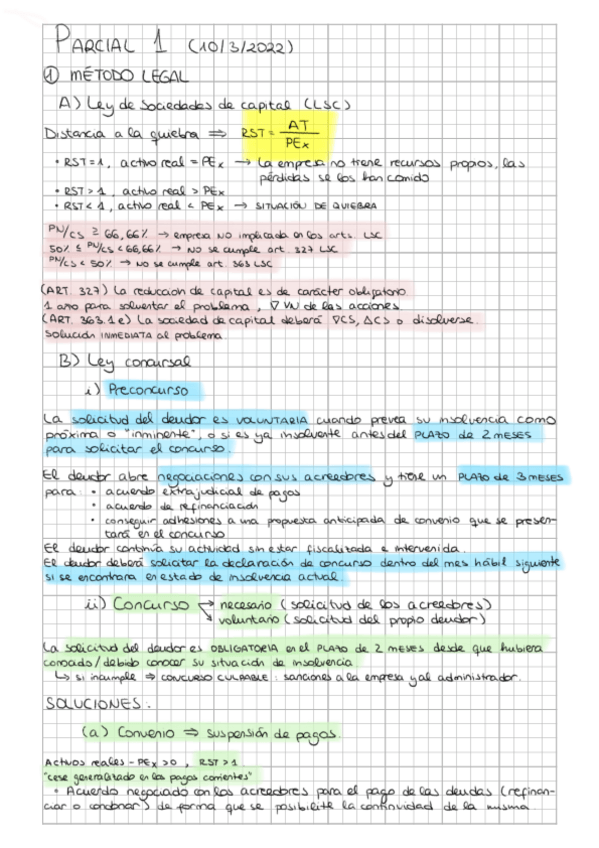 PARCIAL 1 (10/3/2022)
① MÉTODO LEGAL
A) Ley de sociedades de capital (LSC)
Distancia a la quiebra ⇒ RST = AT / PEx
• RST = 1, activo real = PEx → La empresa no tiene recursos propios, las
pérdidas se los han comido
• RST > 1, activo real > PEx
• RST < 1, activo real < PEx → SITUACIÓN DE QUIEBRA
PN/CS ≥ 66,66% → empresa NO implicada en los arts. LSC
50% ≤ PN/CS < 66,66% → NO se cumple art. 327 LSC
PN/CS < 50% → NO se cumple art. 363 LSC
(ART. 327) La reducción de capital es de carácter obligatorio
1 año para solventar el problema, ∇ VN de las acciones
(ART. 363.1e) La sociedad de capital deberá ∇CS, ΔCS o disolverse.
Solución INMEDIATA al problema
B) Ley concursal
i) Preconcurso
La solicitud del deudor es VOLUNTARIA cuando prevea su insolvencia como
próxima o "inminente", o si es ya insolvente antes del PLAZO de 2 MESES
para solicitar el concurso.
El deudor abre negociaciones con sus acreedores y tiene un PLAZO de 3 MESES
para: • acuerdo extrajudicial de pagos
• acuerdo de refinanciación
• conseguir adhesiones a una propuesta anticipada de convenio que se presen-
tará en el concurso
El deudor continúa su actividad sin estar fiscalizada e intervenida.
El deudor deberá solicitar la declaración de concurso dentro del mes hábil siguiente
si se encontrara en estado de insolvencia actual.
ii) Concurso → necesario (solicitud de los acreedores)
→ voluntario (solicitud del propio deudor)
La solicitud del deudor es OBLIGATORIA en el PLAZO de 2 MESES desde que hubiera
conocido/debido conocer su situación de insolvencia
↳ si incumple ⇒ CONCURSO CULPABLE: sanciones a la empresa y al administrador.
SOLUCIONES:
(a) Convenio ⇒ suspensión de pagos.
Activos reales - PEx > 0, RST > 1
"cese generalizado en los pagos corrientes"
• Acuerdo negociado con los acreedores para el pago de las deudas (refinan-
ciar o condonar) de forma que se posibilite la continuidad de la misma.